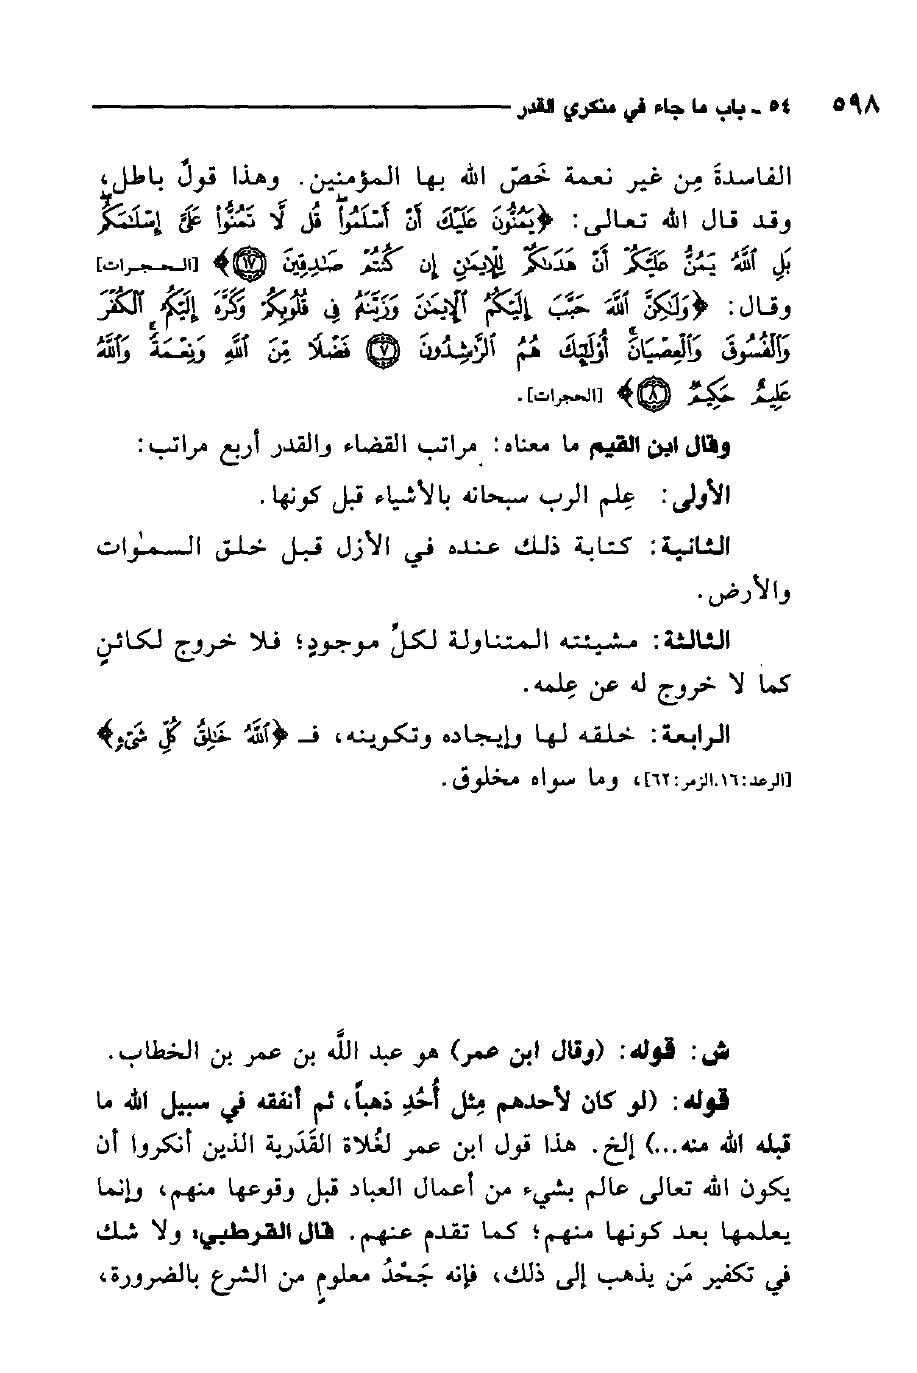 ٥٩٨ ٥٤ ـ باب ما جاء في منكري القدر
الفاسدةَ مِن غير نعمة خَصّ الله بها المؤمنين. وهذا قولٌ باطل،
وقد قال الله تعالى: ﴿يَمُنُّونَ عَلَيْكَ أَنْ أَسْلَمُوا۟ۖ قُل لَّا تَمُنُّوا۟ عَلَىَّ إِسْلَـٰمَكُمۖ
بَلِ ٱللَّهُ يَمُنُّ عَلَيْكُمْ أَنْ هَدَىٰكُمْ لِلْإِيمَـٰنِ إِن كُنتُمْ صَـٰدِقِينَ ۝١٧﴾ [الحجرات]
وقال: ﴿وَلَـٰكِنَّ ٱللَّهَ حَبَّبَ إِلَيْكُمُ ٱلْإِيمَـٰنَ وَزَيَّنَهُۥ فِى قُلُوبِكُمْ وَكَرَّهَ إِلَيْكُمُ ٱلْكُفْرَ
وَٱلْفُسُوقَ وَٱلْعِصْيَانَۚ أُو۟لَـٰٓئِكَ هُمُ ٱلرَّٰشِدُونَ ۝٧ فَضْلًا مِّنَ ٱللَّهِ وَنِعْمَةًۚ وَٱللَّهُ
عَلِيمٌ حَكِيمٌ ۝٨﴾ [الحجرات].
وقال ابن القيم ما معناه: مراتب القضاء والقدر أربع مراتب:
الأولى: عِلم الرب سبحانه بالأشياء قبل كونها.
الثانية: كتابة ذلك عنده في الأزل قبل خلق السمٰوات
والأرض.
الثالثة: مشيئته المتناولة لكلِّ موجودٍ؛ فلا خروج لكائنٍ
كما لا خروج له عن عِلمه.
الرابعة: خلقه لها وإيجاده وتكوينه، فـ ﴿ٱللَّهُ خَـٰلِقُ كُلِّ شَىْءٍ﴾
[الرعد:١٦.الزمر:٦٢]، وما سواه مخلوق.
ش: قوله: (وقال ابن عمر) هو عبد اللَّه بن عمر بن الخطاب.
قوله: (لو كان لأحدهم مِثل أُحُدٍ ذهباً، ثم أنفقه في سبيل الله ما
قبله الله منه...) إلخ. هذا قول ابن عمر لغُلاة القَدَرية الذين أنكروا أن
يكون الله تعالى عالم بشيء من أعمال العباد قبل وقوعها منهم، وإنما
يعلمها بعد كونها منهم؛ كما تقدم عنهم. قال القرطبي: ولا شك
في تكفير مَن يذهب إلى ذلك، فإنه جَحْدُ معلومٍ من الشرع بالضرورة،